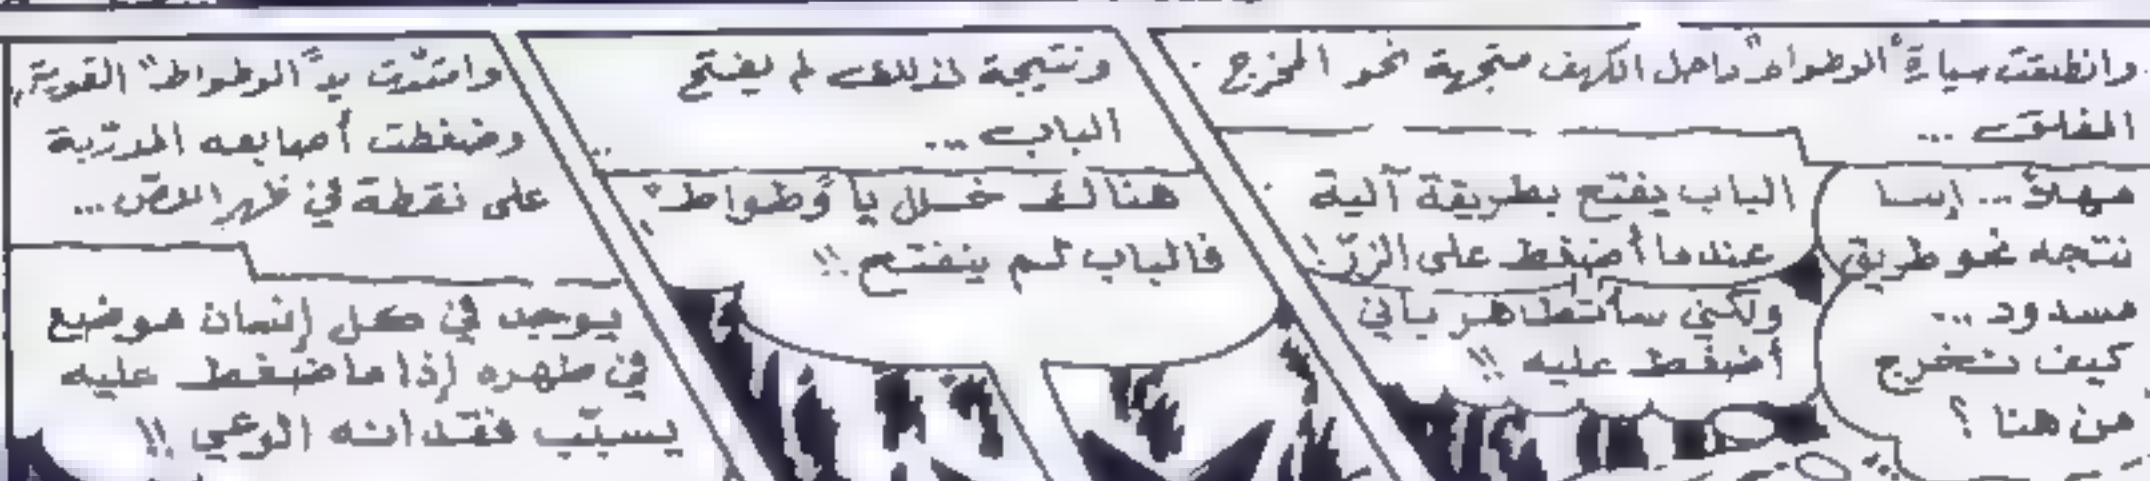 وانطلقت سيارة "الوطواط" داخل الكهف متجهة نحو المخرج
المغلق ...
مهلاً ... إننا
نتجه نحو طريق
مسدود ...
كيف سنخرج
من هنا ؟
الباب يفتح بطريقة آلية
عندما أضغط على الزرّ !
ولكني سأتظاهر بأني
أضغط عليه !!
ونتيجة لذلك لم يفتح
الباب ...
هنالك خلل يا "وطواط"
فالباب لم ينفتح !!
وامتدّت يد "الوطواط" القوية,
وضغطت أصابعه المدرّبة
على نقطة في ظهر اللص ...
يوجد في كل إنسان موضع
في ظهره إذا ما ضغط عليه
يسبّب فقدانه الوعي !!